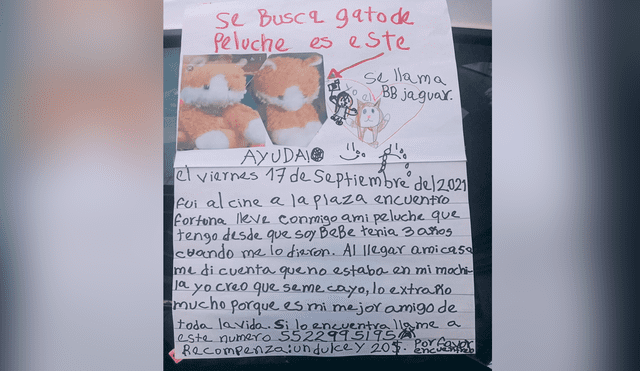 Se Busca gato de
Peluche es este
Se llama
BB jaguar.
Yo el
AYUDA!
el viernes 17 de Septiembre del 2021
fui al cine a la plaza encuentro
fortuna lleve conmigo a mi peluche que
tengo desde que soy BeBe tenia 3 años
cuando me lo dieron. Al llegar a mi casa
me di cuenta que no estaba en mi mochi-
la yo creo que se me cayo, lo extraño
mucho porque es mi mejor amigo de
toda la vida. Si lo encuentra llame a
este numero 5522995195
Recompenza: un dulce Y 20$. por favor
encuentrelo